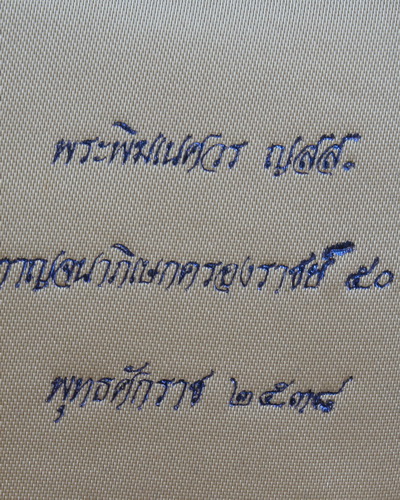 พระพิฆเนศวร ญสส.
กาญจนาภิเษกครองราชย์ ๕๐
พุทธศักราช ๒๕๓๘